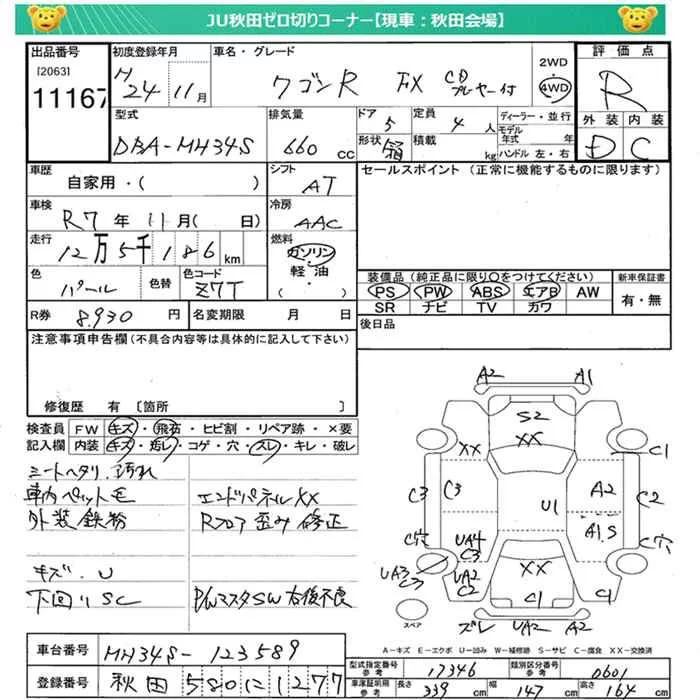 JU秋田ゼロ切りコーナー【現車：秋田会場】
出品番号
[2063]
11167
初度登録年月
H24 11月
車名・グレード
ワゴンR FX CDプレヤー付
2WD
4WD
評価点
R
外装 内装
D C
型式
DBA-MH34S
排気量
660 cc
ドア 5
形状 箱
定員 4 人
積載 kg
ディーラー・並行
モデル年式 年
ハンドル 左・右
車歴
自家用・( )
シフト
AT
セールスポイント (正常に機能するものに限ります)
車検
R7 年 11 月( 日)
冷房
AAC
走行
12万5千186 km
燃料
ガソリン
軽・油
・( )
色
パール
色替
色コード
Z7T
装備品(純正品に限り○をつけてください)
PS PW ABS エアB AW
SR ナビ TV カワ
新車保証書
有・無
R券 8,930 円
名変期限 月 日
後日品
注意事項申告欄(不具合内容等は具体的に記入して下さい)
修復歴 有 〔箇所 〕
検査員 FW キズ・飛石・ヒビ割・リペア跡・×要
記入欄 内装 キズ・汚レ・コゲ・穴・スレ・キレ・破レ
シートヘタリ、汚れ
車内ペット毛 エンドパネルXX
外装鉄粉 Rフロア歪み修正
キズ・U
下回りSC P/WマスタSW右後不良
A2 A1
S2
XX XX
C1
C3 C3 U1 A2 C2
C穴 UA4 C3 A1S C穴
UA3 C3 UA2 C2 XX
C1 C1
スペア
ズレ UA2 A2
A-キズ E-エクボ U-凹み W-補修跡 S-サビ C-腐食 XX-交換済
車台番号 MH34S-123589
登録番号 秋田 580 に 1277
型式指定番号 参考 17346
類別区分番号 参考 0601
車庫証明用 参考 長さ 339 cm 幅 147 cm 高さ 164 cm